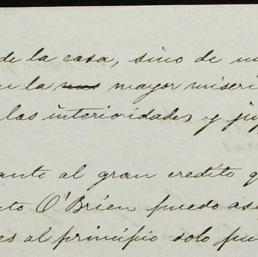 de la casa, sino de
la mayor miseri
las interioridades y
anto al gran credito
O'Brien puedo ase
es al principio solo pu